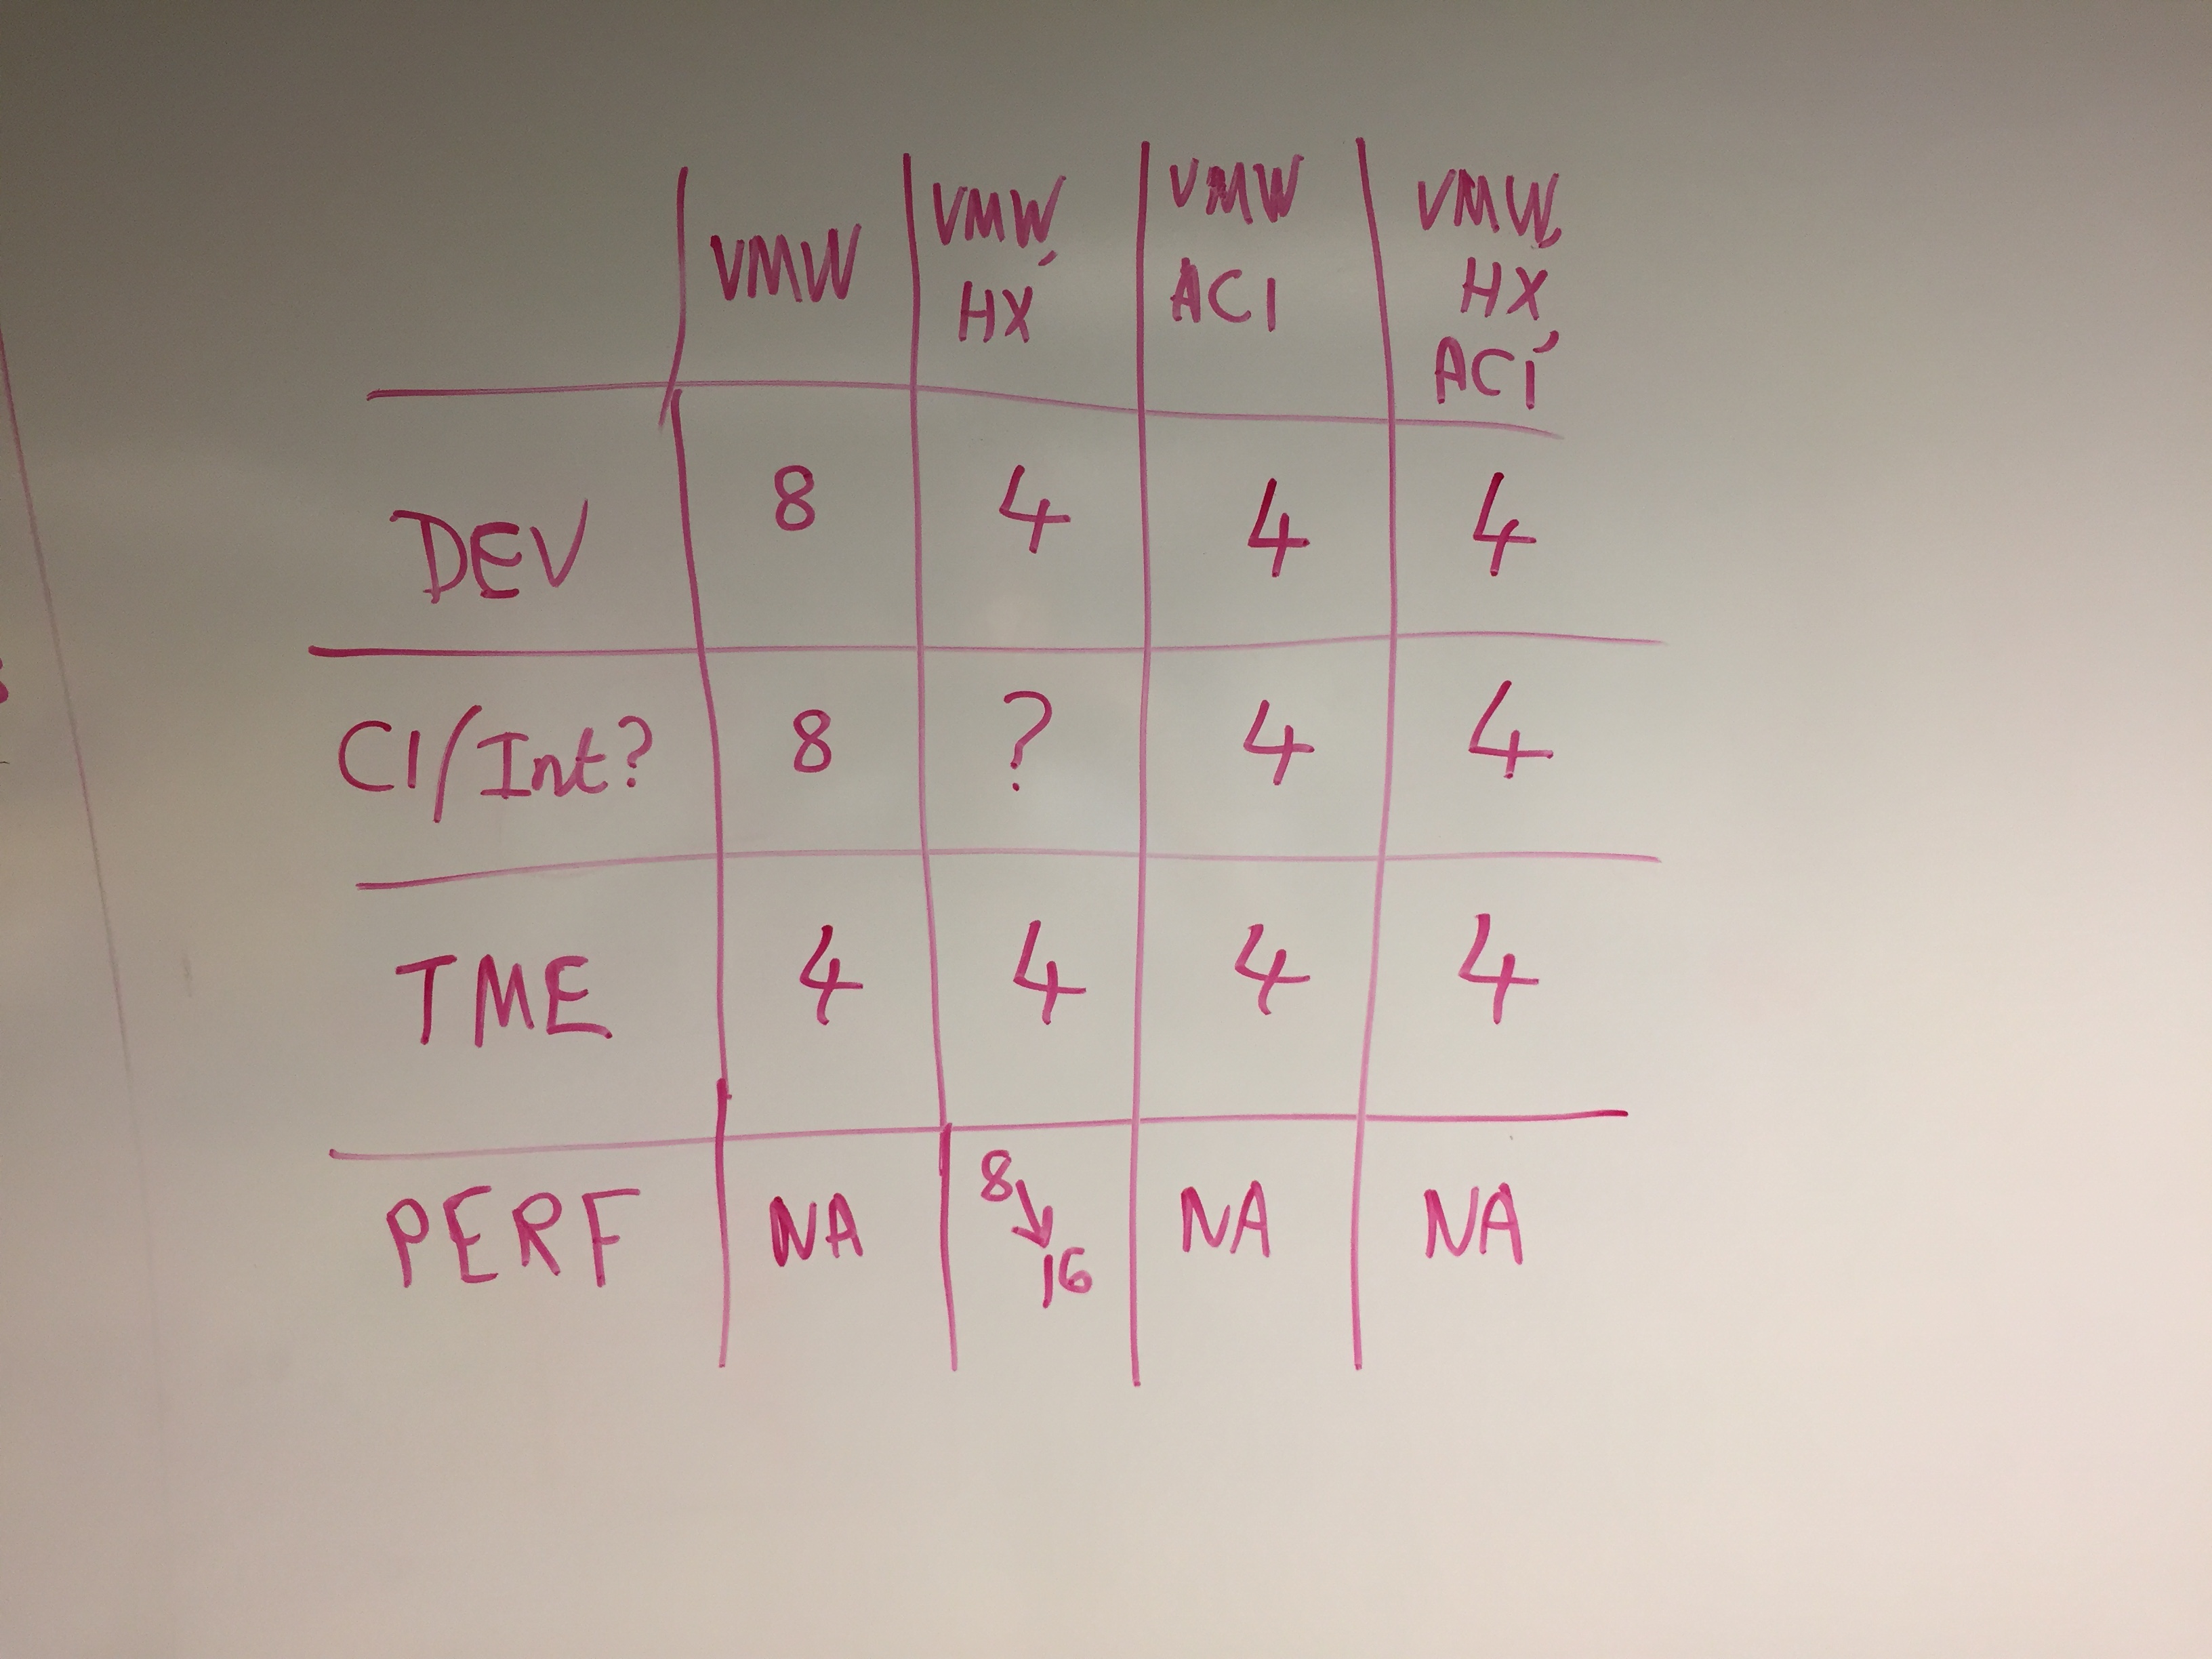 VMW | VMW, HX | VMW ACI | VMW, HX, ACI
DEV | 8 | 4 | 4 | 4
CI/Int? | 8 | ? | 4 | 4
TME | 4 | 4 | 4 | 4
PERF | NA | 8 → 16 | NA | NA